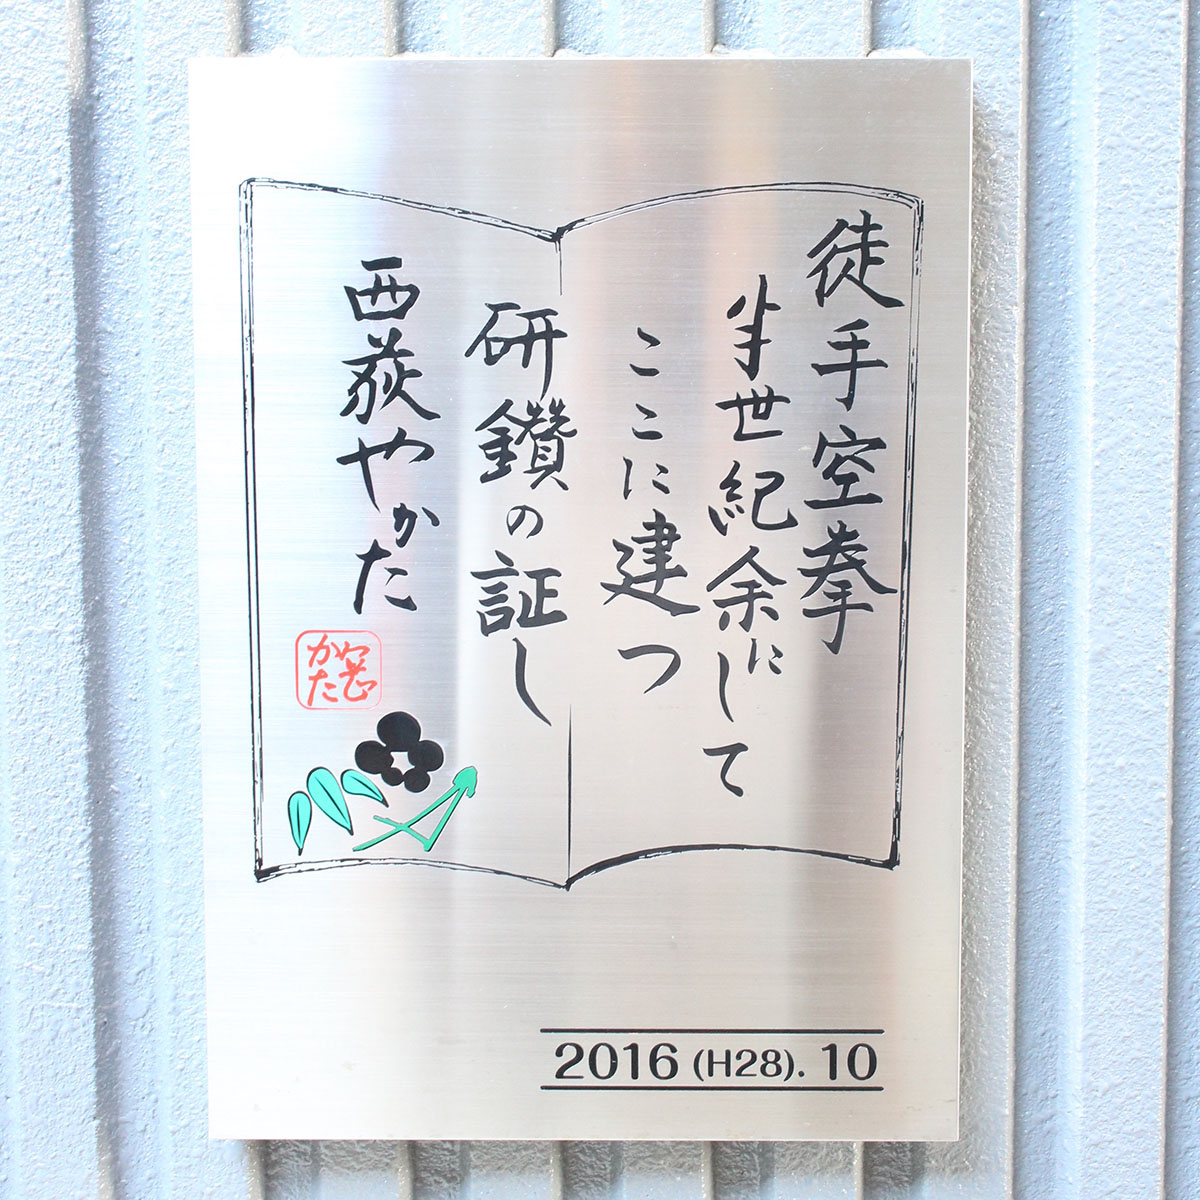 徒手空拳
半世紀余にして
ここに建つ
研鑽の証し
西荻やかた
2016 (H28). 10